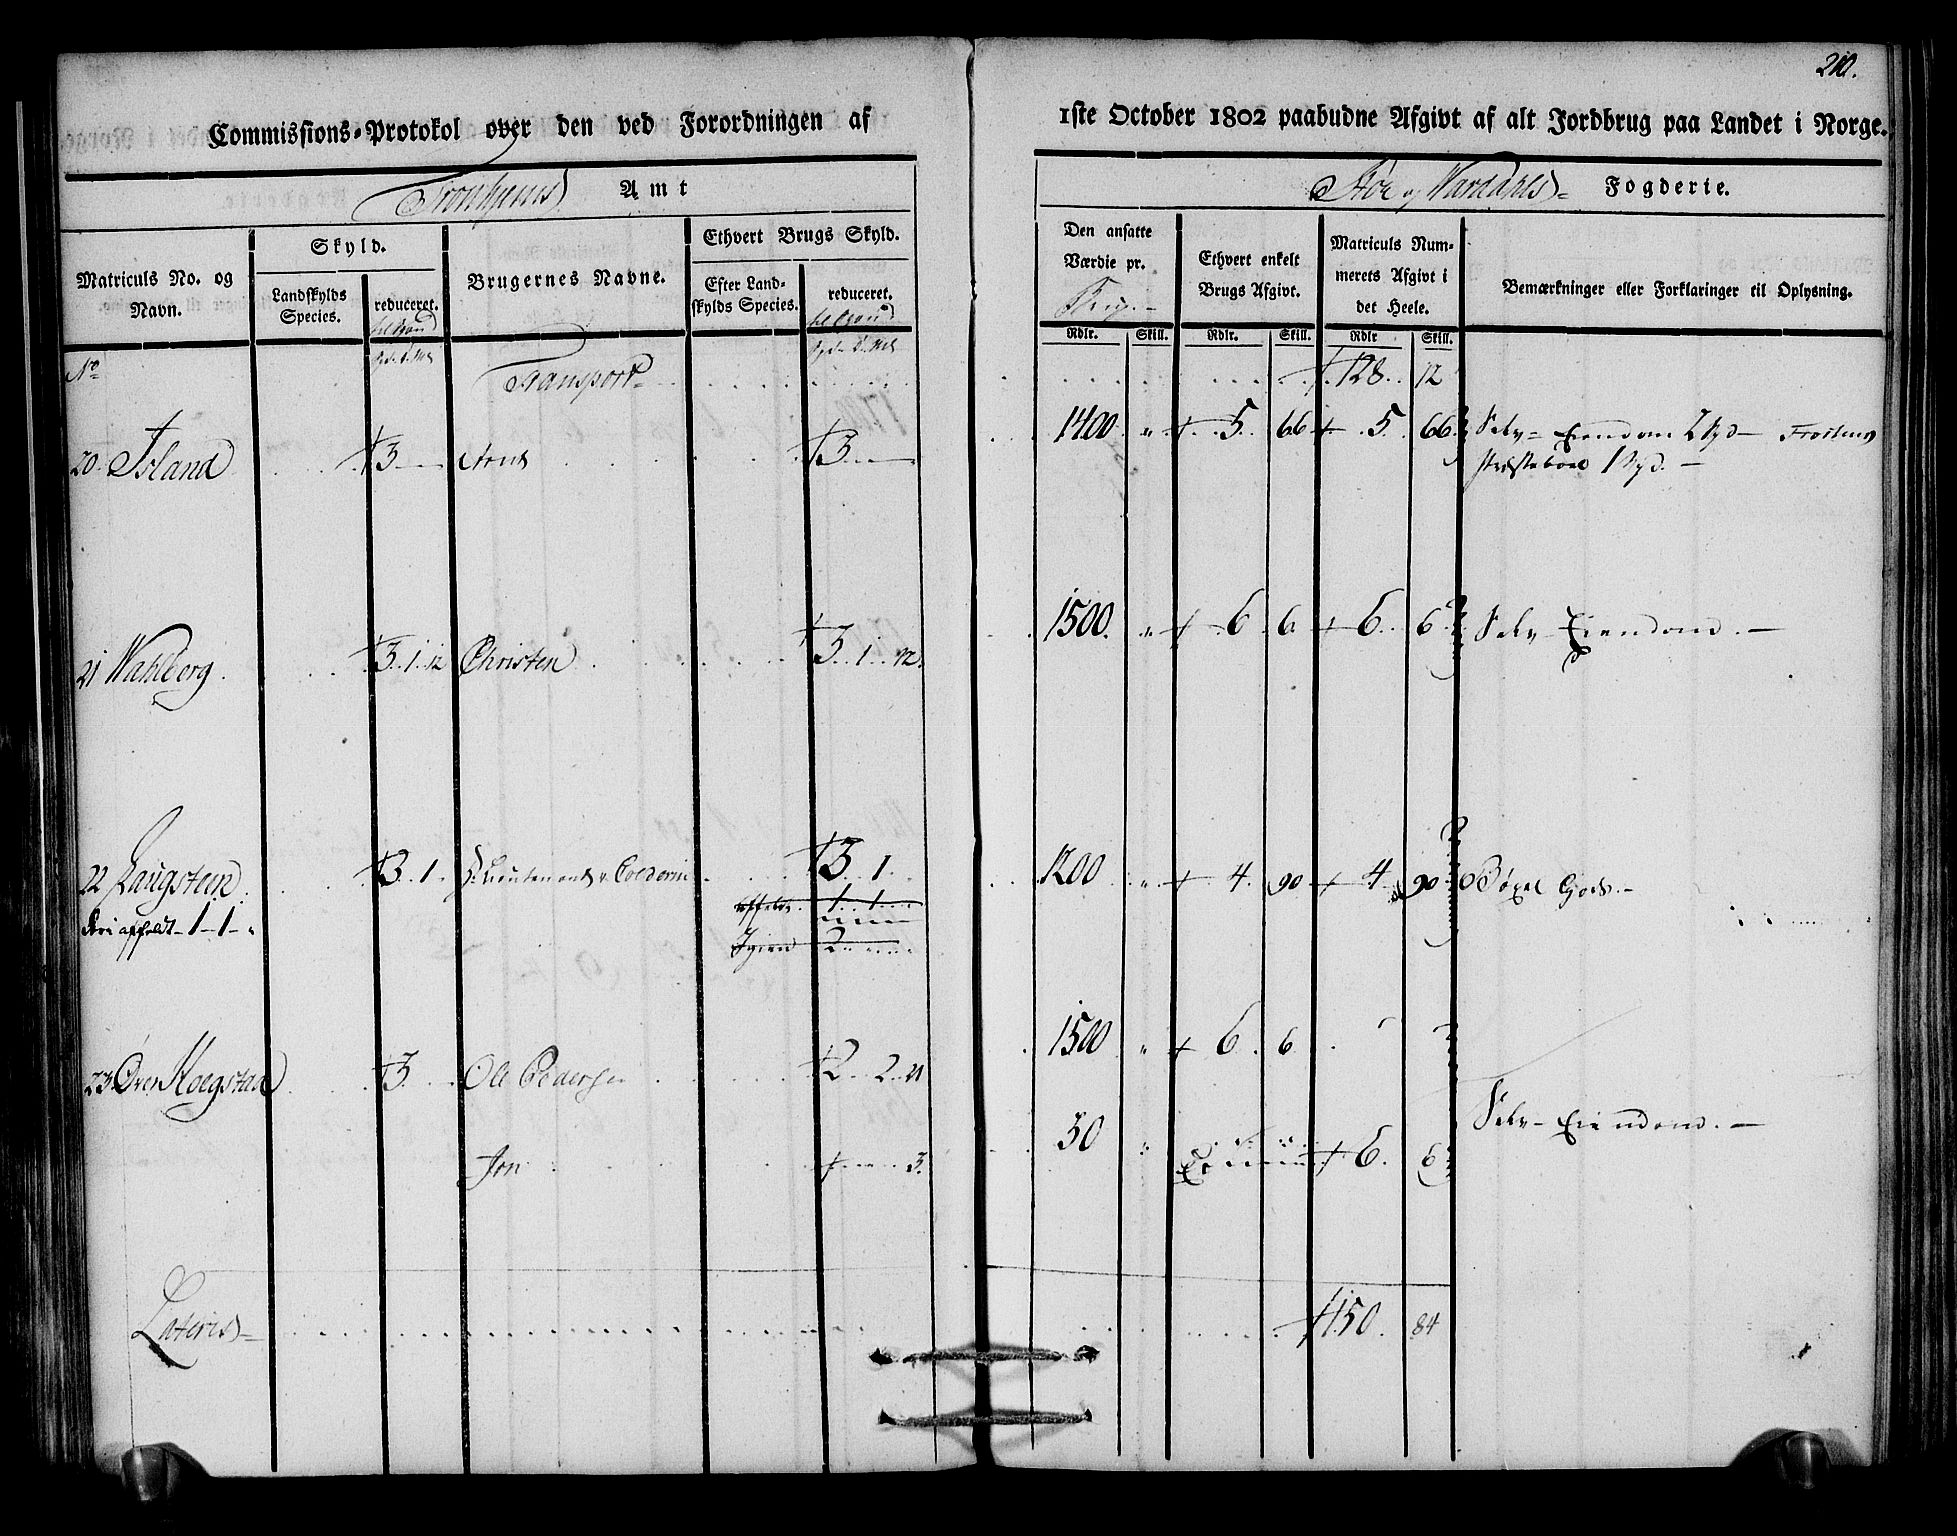 210.
Commissions-Protokol over den ved Forordningen af 1ste October 1802 paabudne Afgivt af alt Jordbrug paa Landet i Norge.
Tronhjems Amt
Stør og Værdahls Fogderie.
Matriculs No. og Navn.
Skyld.
Landskylds Species.
reduceret.
Brugernes Navne.
Ethvert Brugs Skyld.
Efter Landskylds Species.
reduceret.
Den ansatte Værdie pr.
Ethvert enkelt Brugs Afgivt.
Matriculs Nummerets Afgivt i det Heele.
Bemærkninger eller Forklaringer til Oplysning.
Rdlr. Skill. Rdlr. Skill. Rdlr Skill.
No Transport 128 12
20 Island 3 Arnt 3 1400 " 5 66 5 66 Selv-Eiendom 2 Spd
Præsteboel 1 Spd.
21 Wahlberg 3 1 12 Christen 3 1 12 1500 " 6 6 6 6 Selv-Eiendom.
22 Laugstein 3 1 Lieutenant 3 1 1200 " 4 90 4 90 Gods.
affeldt 1 1 "
affeldt 1 1
Igien 2
23 Øver Moegstad 3 Ole Pedersen 2 2 21 1500 " 6 6
Selv-Eiendom.
Jon 3 50 " 6 6
Lateris 150 84